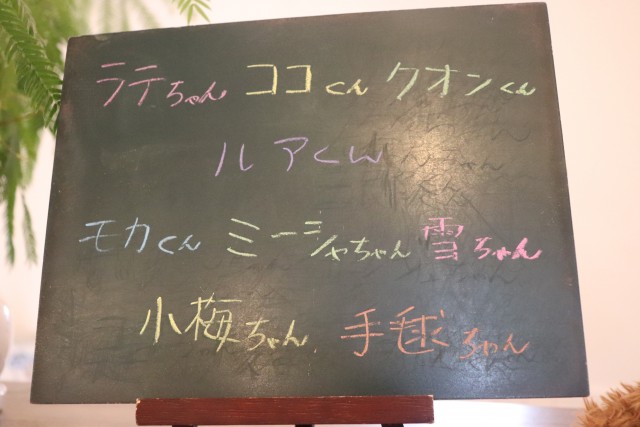 ラテちゃん ココくん クオンくん
ルアくん
モカくん ミーシャちゃん 雪ちゃん
小梅ちゃん 手毬ちゃん